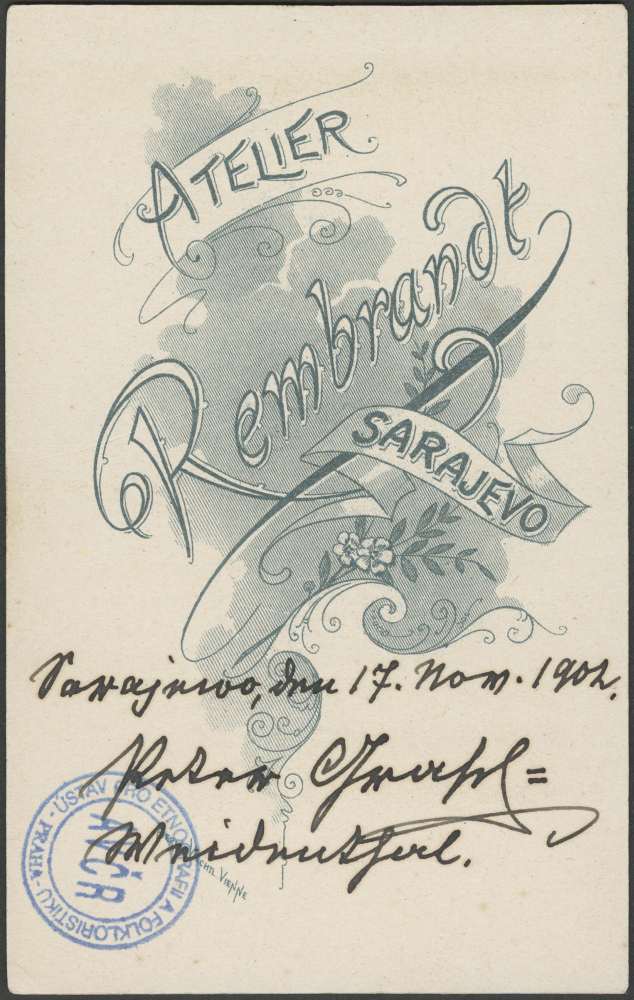 ATELIER
Rembrandt
SARAJEVO
Sarajewo, den 17. Nov. 1902.
Peter Grasl=
Weidenthal.
ÚSTAV PRO ETNOGRAFII A FOLKLORISTIKU - PRAHA -
AVČR
VIENNE